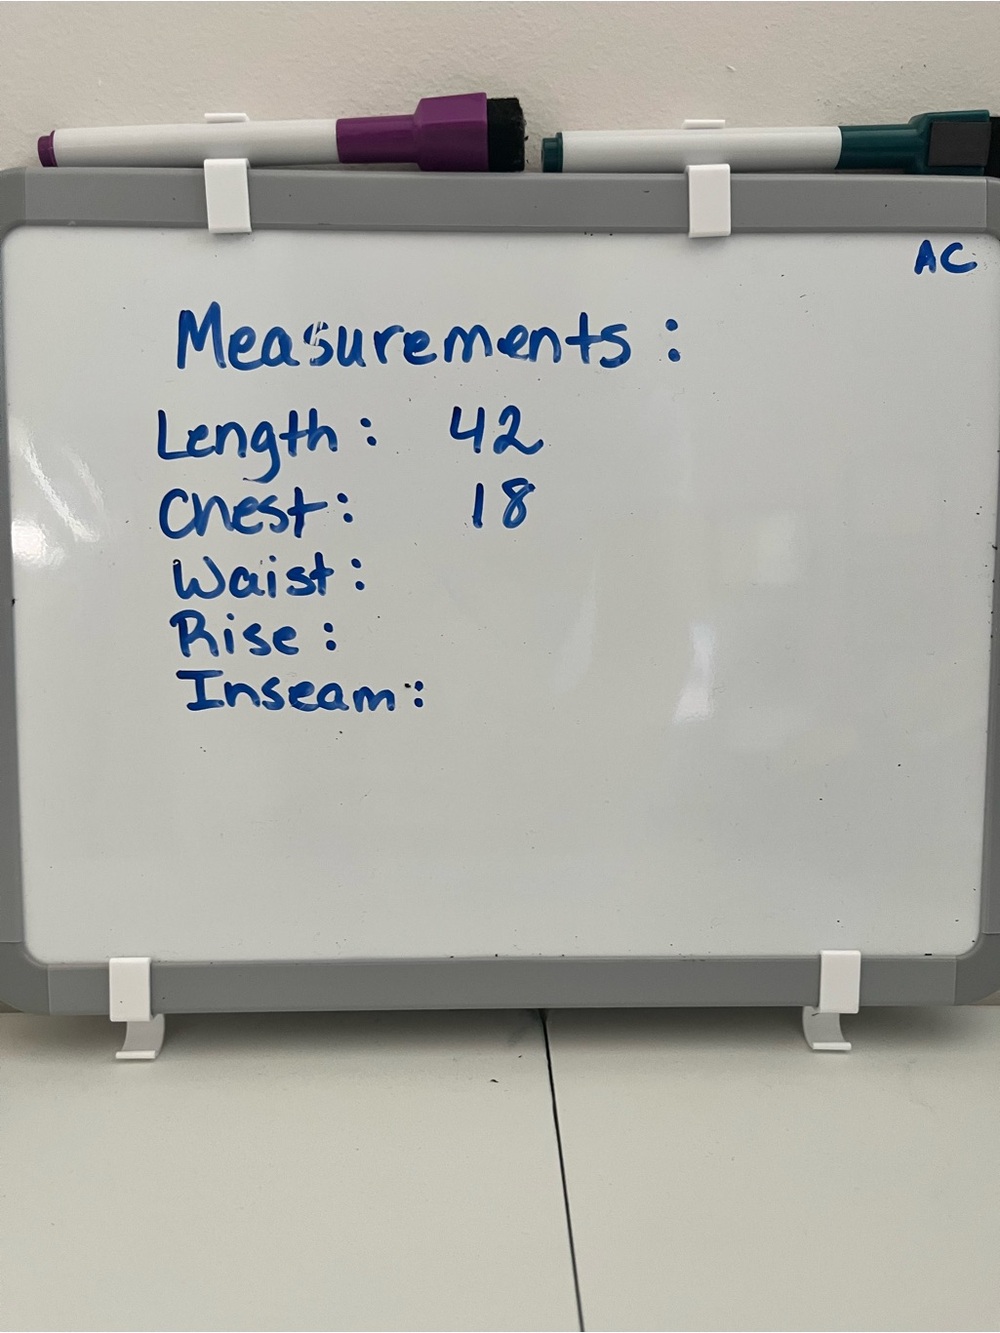 AC
Measurements:
Length: 42
Chest: 18
Waist:
Rise:
Inseam: